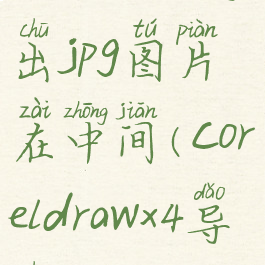 chū tú piàn
出jpg图片
zài zhōng jiān
在中间(cor
dǎo
eldrawx4导